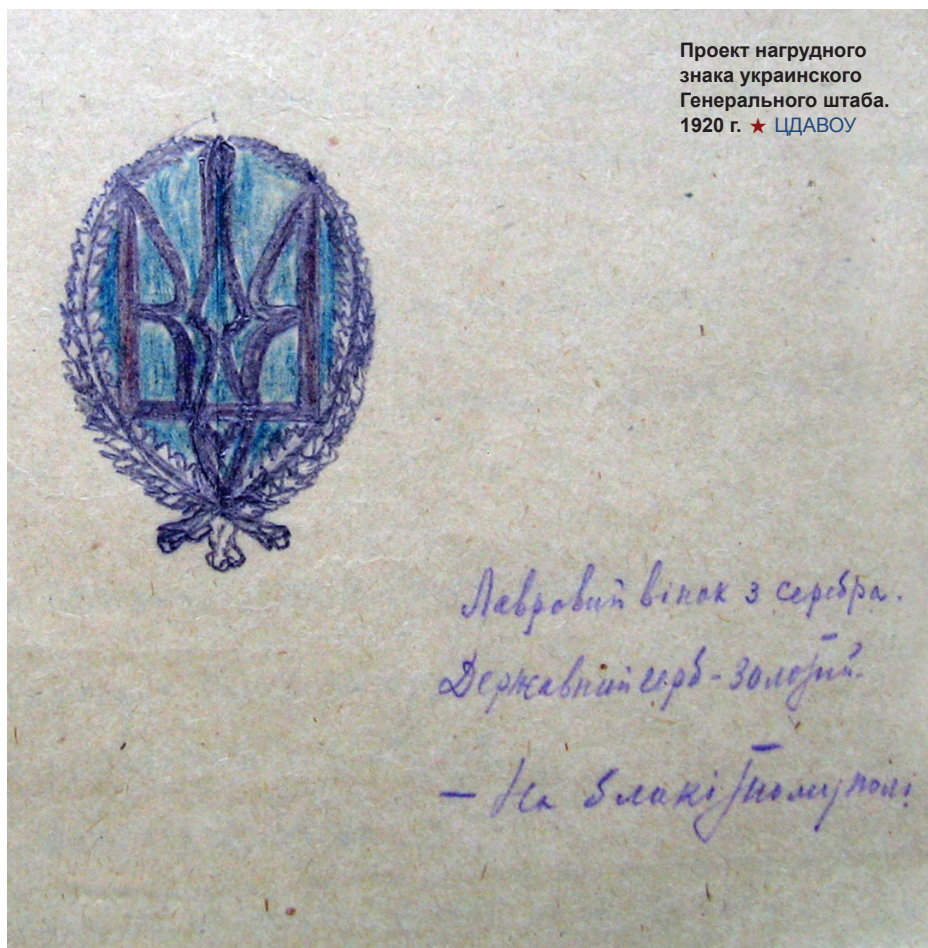 Проект нагрудного
знака украинского
Генерального штаба.
1920 г. ★ ЦДАВОУ
Лавровий вінок з серебра.
Державний герб - золотий.
— На блакітному полі